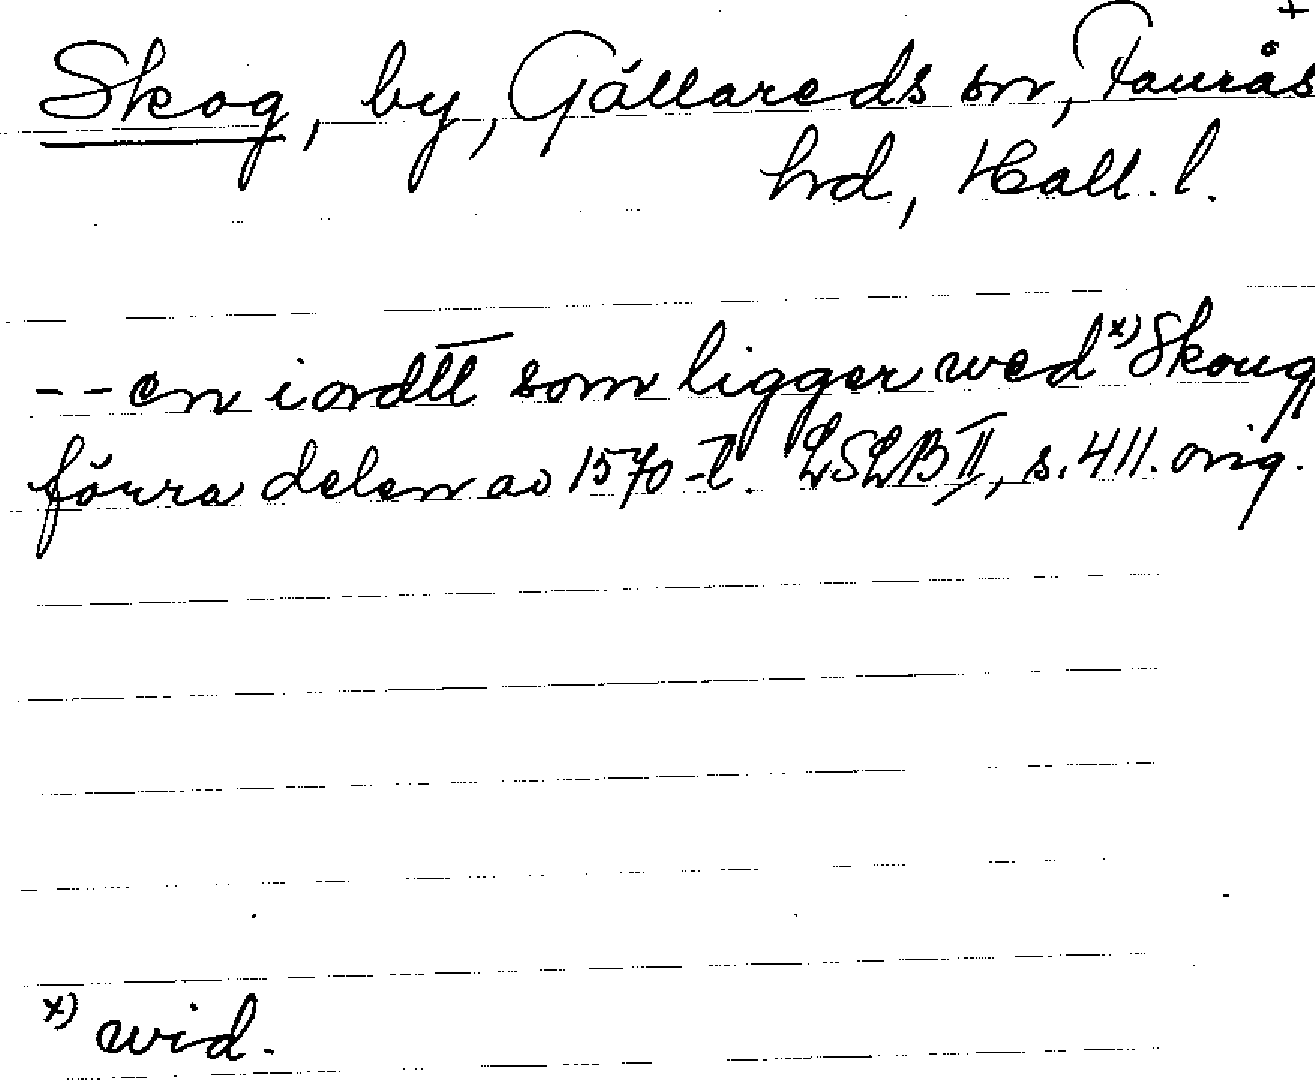 +
Skog, by, Gällareds sn, Faurås
hrd, Hall. l.
-- en iordtt som ligger wed x) Skoug
förra delen av 1570-t. LSLB II, s. 411. orig.
x) wid.